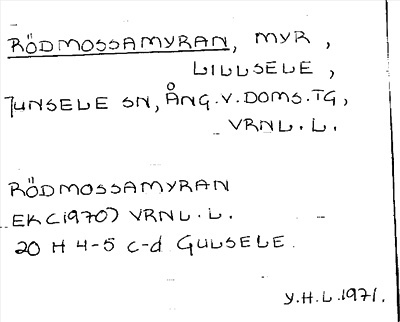 RÖDMOSSAMYRAN, MYR,
LILLSELE,
JUNSELE SN, ÅNG.V.DOMS.TG,
VRNL.L.
RÖDMOSSAMYRAN
EK(1970) VRNL.L.
20 H 4-5 c-d GULSELE.
Y.H.L.1971.